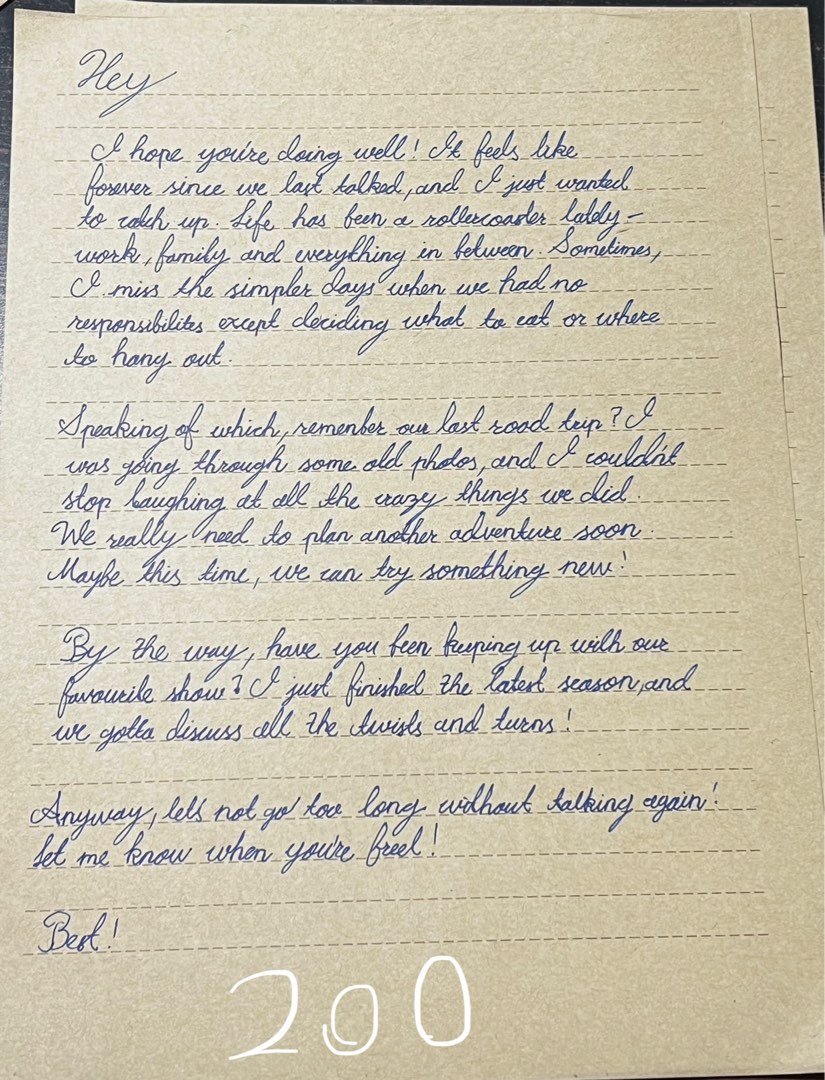 Hey
I hope you're doing well! It feels like
forever since we last talked, and I just wanted
to catch up. Life has been a rollercoaster lately -
work, family and everything in between. Sometimes,
I miss the simpler days when we had no
responsibilites except deciding what to eat or where
to hang out.
Speaking of which, remember our last road trip? I
was going through some old photos, and I couldn't
stop laughing at all the crazy things we did.
We really need to plan another adventure soon.
Maybe this time, we can try something new!
By the way, have you been keeping up with our
favourite show? I just finished the latest season, and
we gotta discuss all the twists and turns!
Anyway, let's not go too long without talking again!
Let me know when you're free!
Best!
200